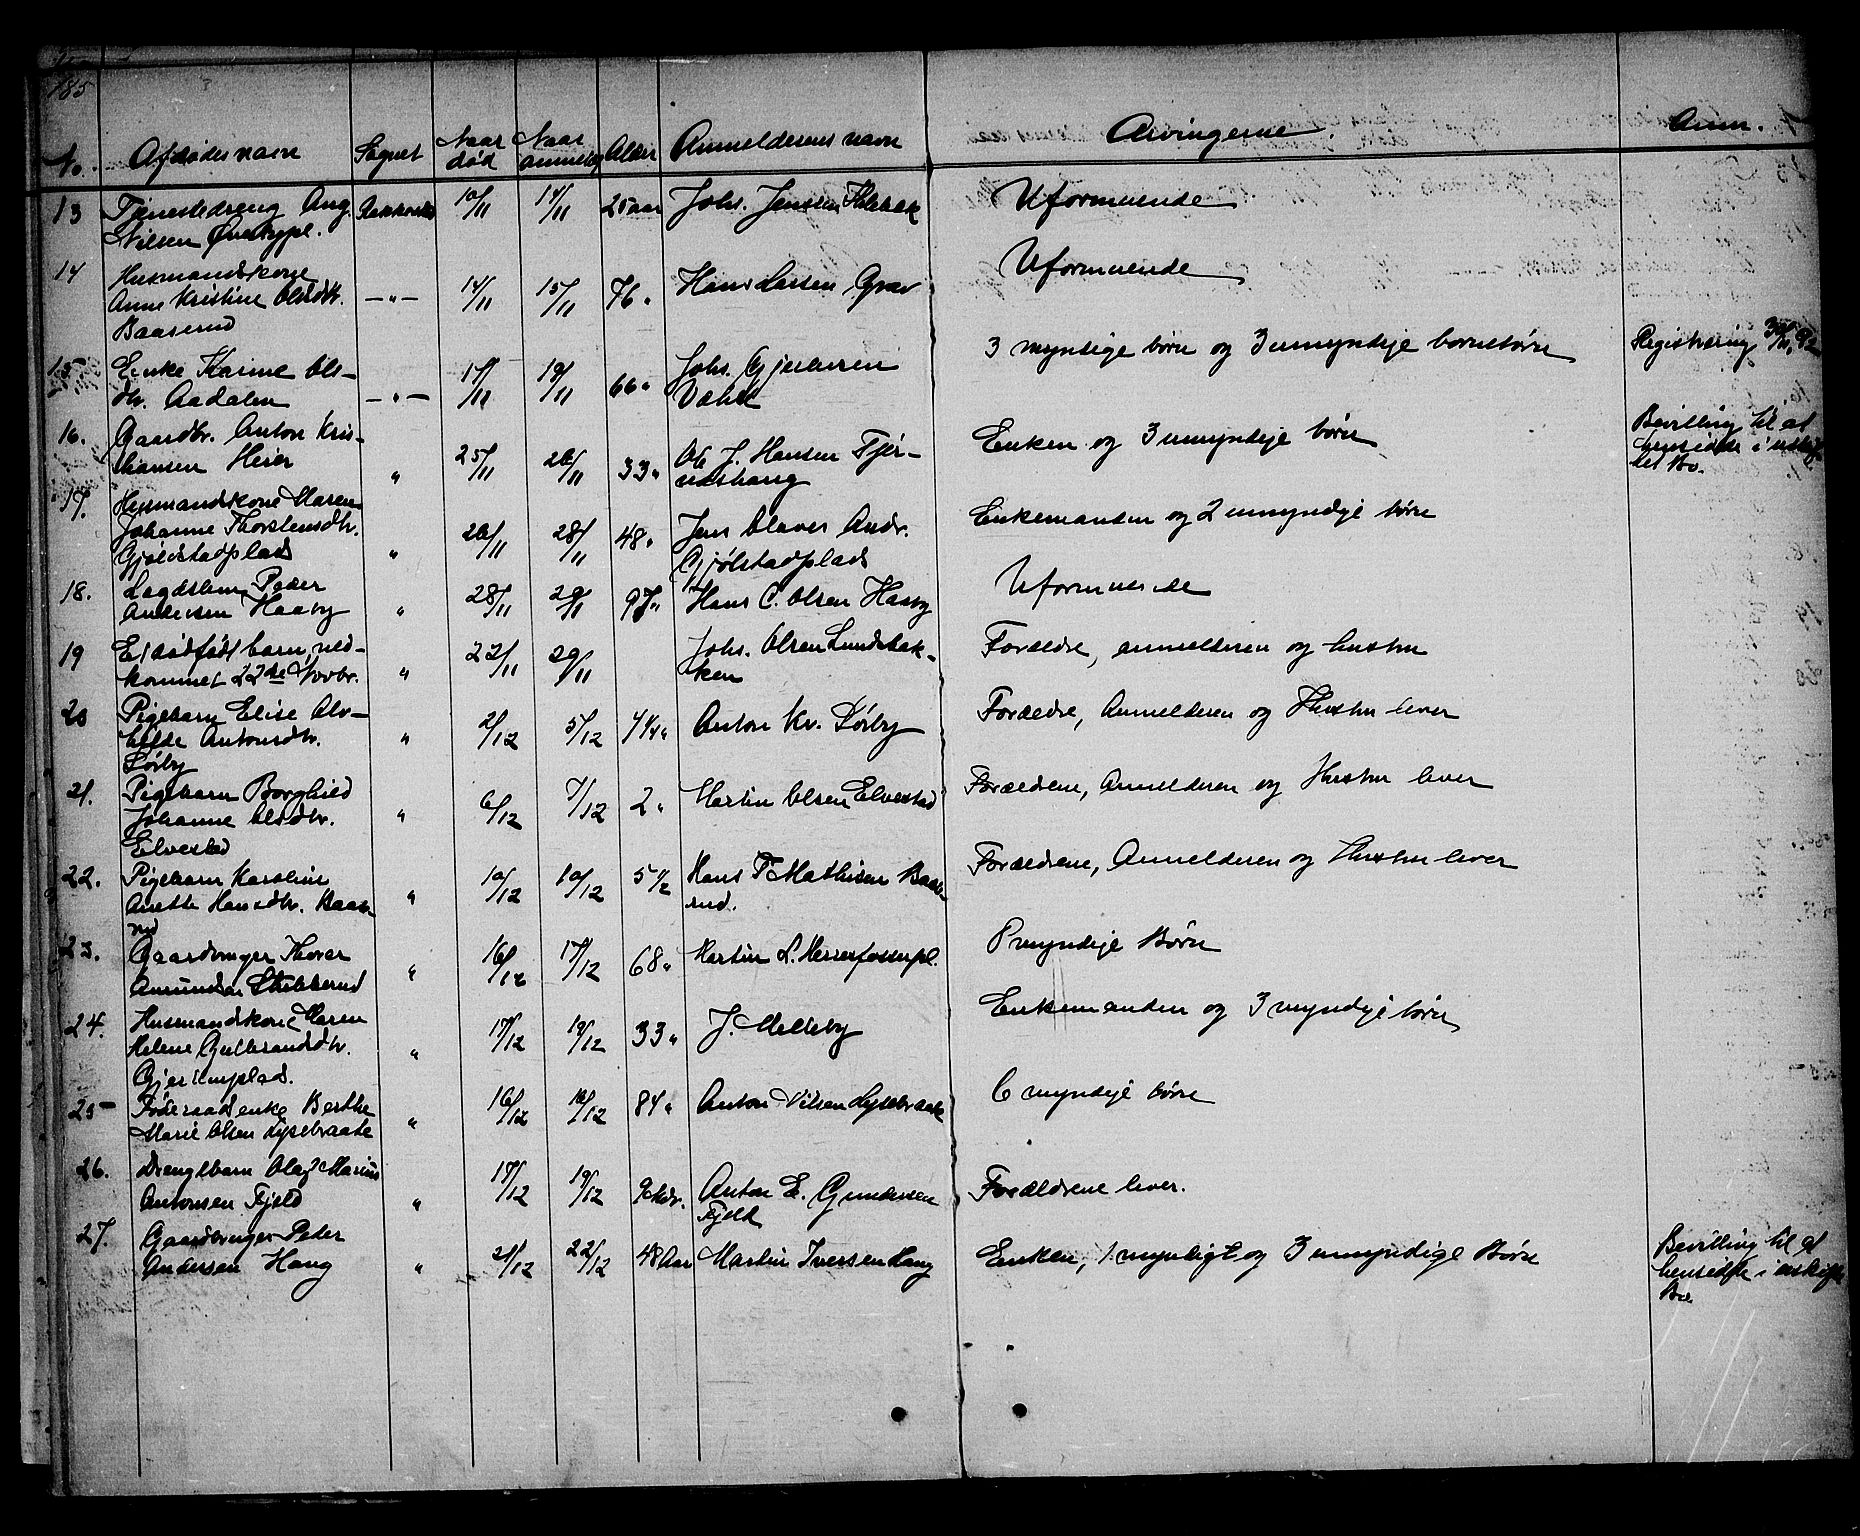 185
No. Afdødes navn Sognet Naar død Naar anmeldt Alder Anmelderens navn Arvingerne. Anm.
13 Tjenestedreng Aug. Rakkestad 10/11 14/11 25 aar Johs. Jensen Uformuende
Nilsen
14 Husmandskone Uformuende
Anne Kristine Olsdtr. —"— 14/11 15/11 76 " Hans Larsen Grav
Baaserud
15 Enke Karine Ols- Johs. 3 myndige børn og 3 umyndige børnebørn Registrering
dtr. Aadalen —"— 17/11 19/11 66 "
16. Gaardbr. Anton Kris- Enken og 3 umyndige børn Bevilling til at
tiansen Heier " 25/11 26/11 33 " Ole J. Hansen Fjer- hensidde i uskif-
udshaug tet Bo.
17. Husmandskone Maren Enkemanden og 2 umyndige børn
Johanne Thorstensdtr. " 26/11 28/11 48 " Jens Olaves Andr.
Gjølstadplads Gjølstadplads
18. Lægdslem Peder Uformuende
Andersen Haaby " 28/11 29/11 97 " Hans C. Olsen Haaby
19 Et dødfødt barn, ned- " 22/11 29/11 Johs. Olsen Lundebak- Forældre, anmelderen og hustru
kommet 22de Novbr. ken
20 Pigebarn Elise Alv- Forældre, Anmelderen og Hustru lever
hilde Antonsdtr. " 2/12 5/12 " Anton Kr. Sørby
Sørby
21. Pigebarn Borghild Forældrene, Anmelderen og Hustru lever
Johanne Olsdtr. " 6/12 7/12 2 " Martin Olsen Elvestad
Elvestad
22. Pigebarn Karoline Forældrene, Anmelderen og Hustru lever
Anette Hansdtr. Baase- " 10/12 10/12 5 1/2 Hans T. Mathisen Baase-
rud rud.
23. Gaardbruger Thorer 8 myndige Børn
Amundsen Stubberud " 16/12 17/12 68 " Martin L.
24. Husmandskone Maren Enkemanden og 3 myndige børn
Helene Gulbrandsdtr. " 17/12 19/12 33 " J. Melleby
25 Føderaadsenke Berthe 6 myndige børn
Marie Olsen Lysebraate " 16/12 /12 84 " Anton Nilsen Lysebraate
26. Drengebarn Olaf Marius Forældrene lever.
Antonsen Fjeld " 17/12 19/12 Anton E. Gundersen
Fjeld
27. Gaardbruger Peder Bevilling til at
Andersen Haug " 21/12 22/12 48 Aar Martin Iversen Haug Enken, 1 myndigt og 3 umyndige Børn hensidde i uskiftet
Bo